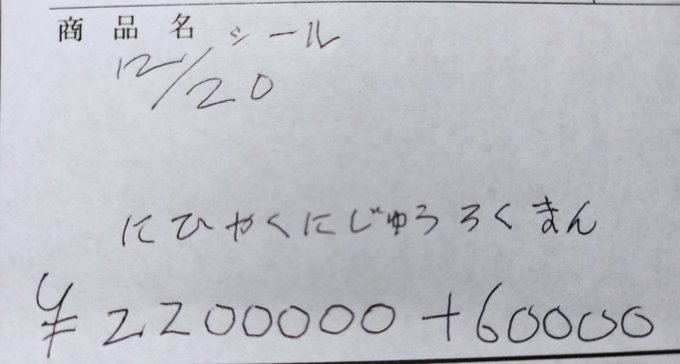 商品名 シール
12/20
にひゃくにじゅうろくまん
¥2200000+60000